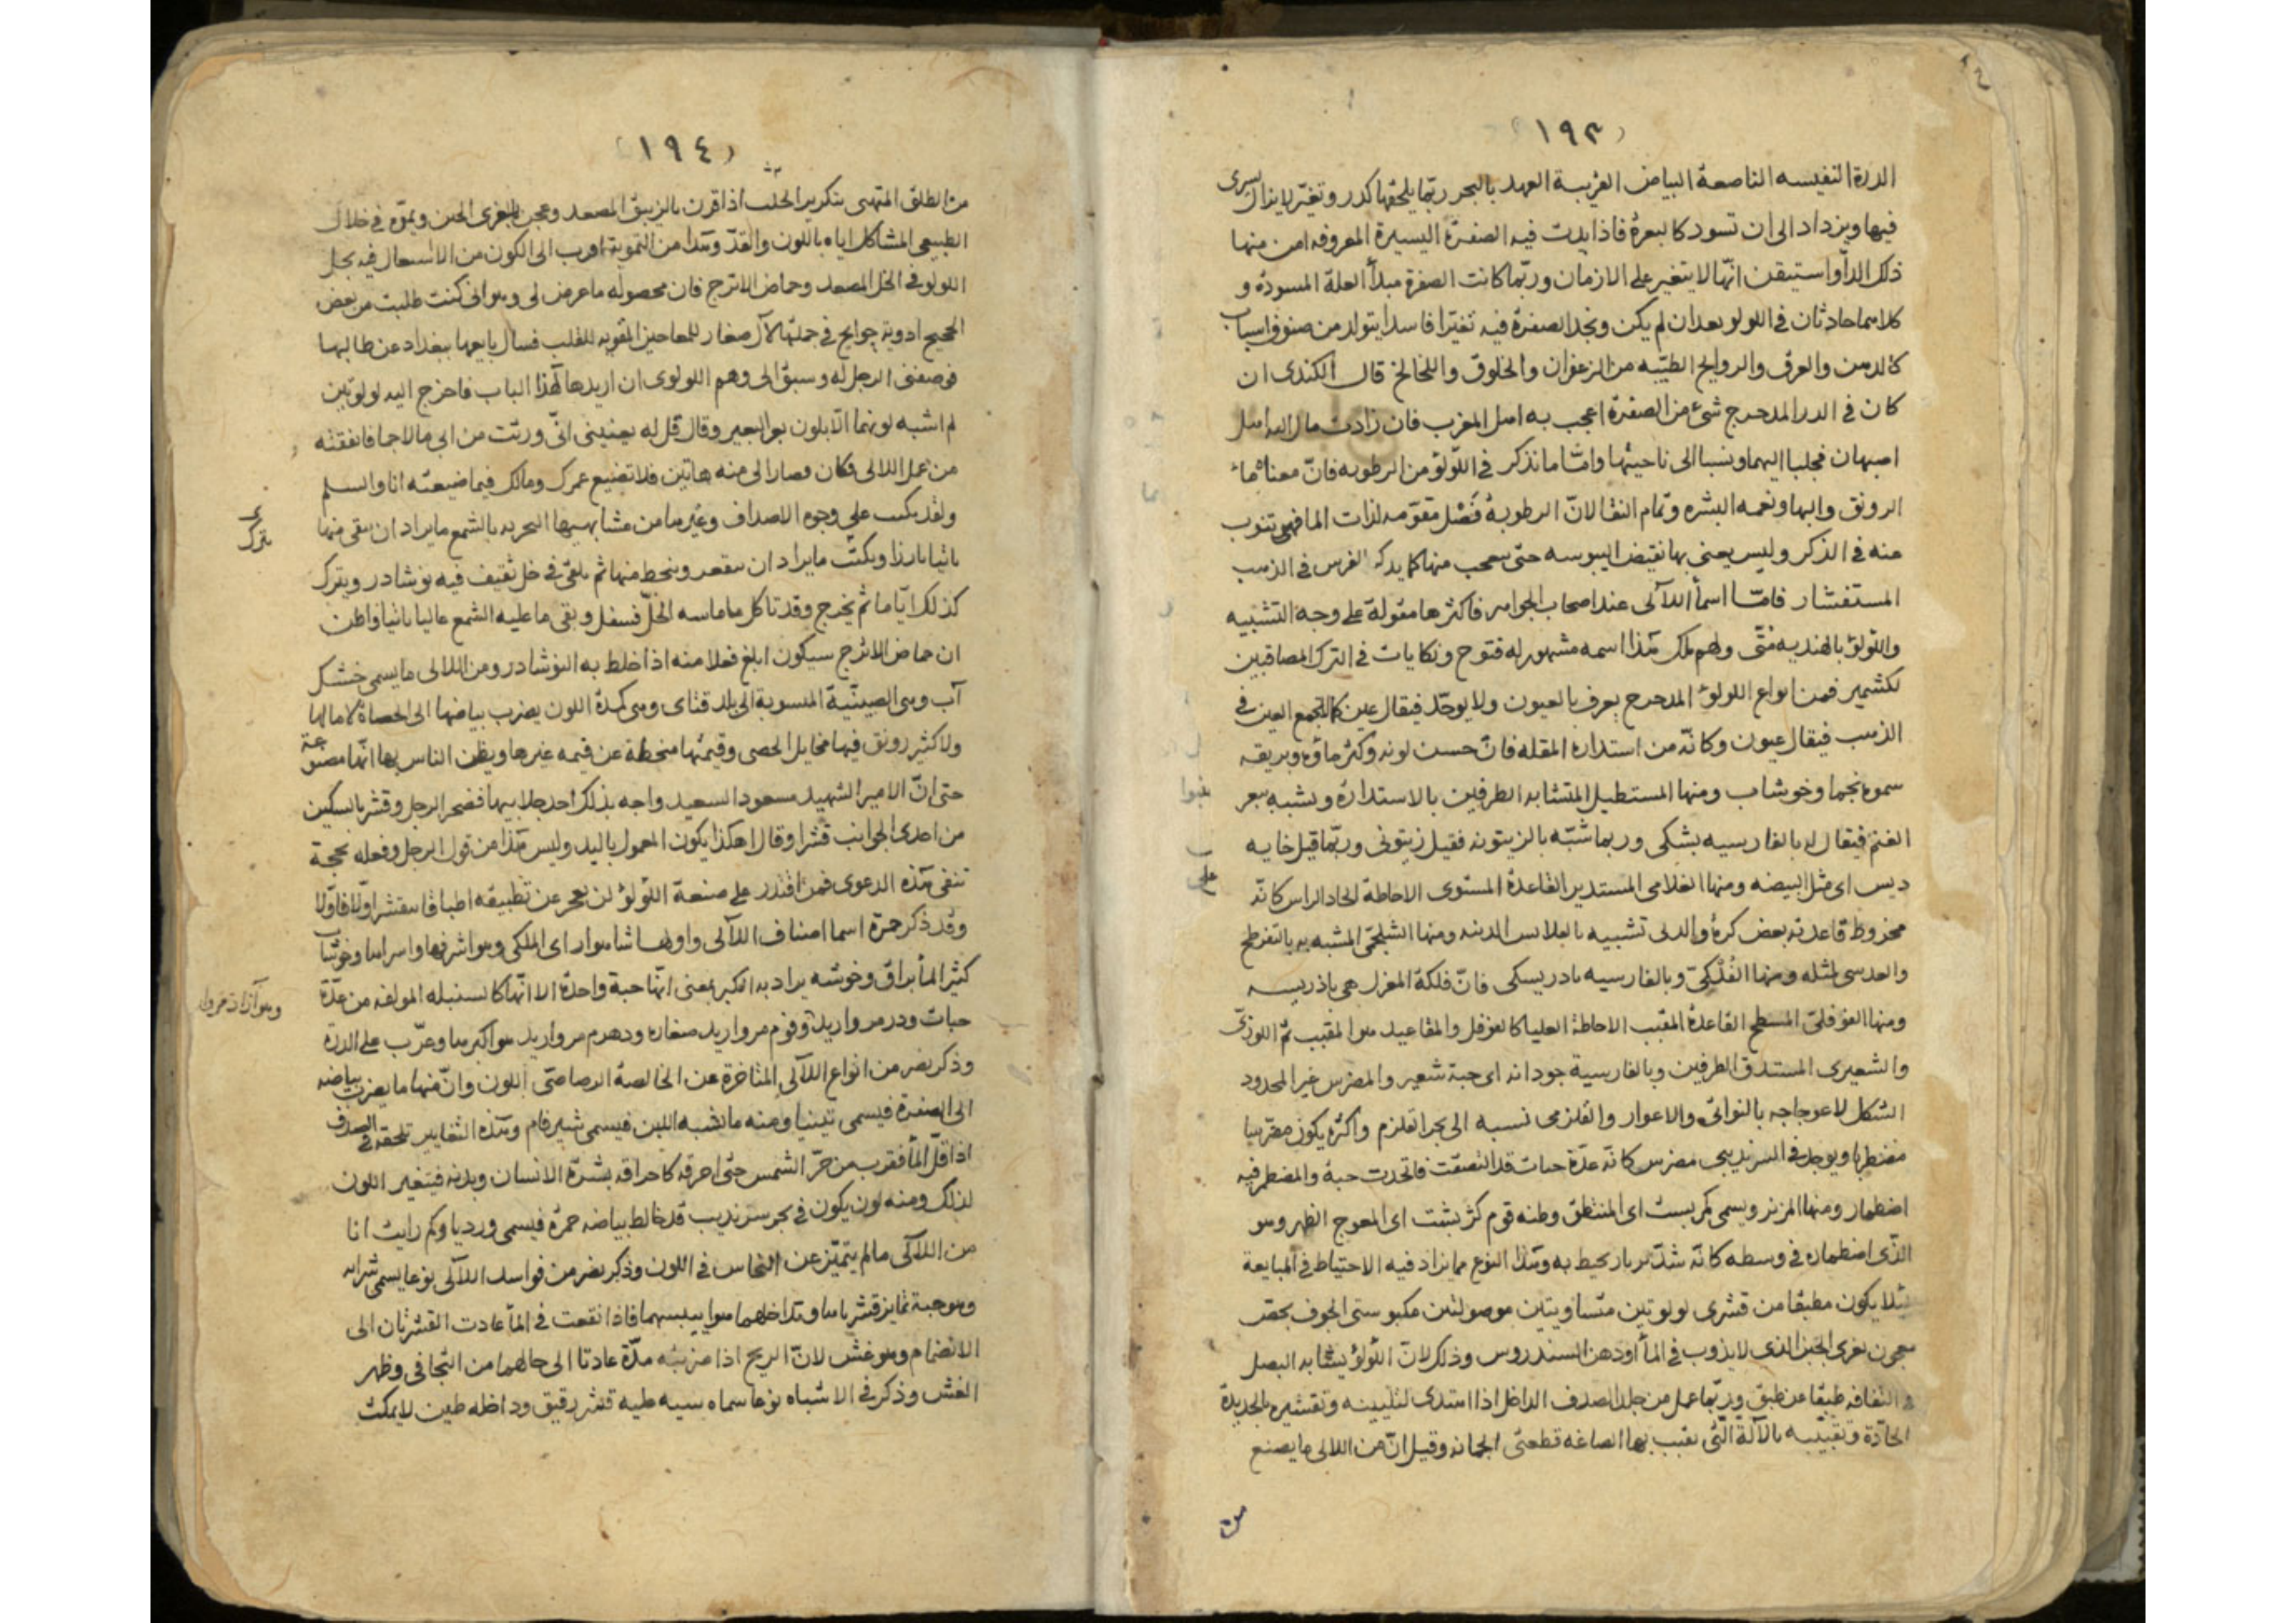 ١٩٣
الدرة النفيسه الناصعة البياض القريبة العهد بالبحر ربّما يلحقها كدر وتغيّر لايزال يسرى
فيها ويزداد الى ان تسود كالبعرة فاذا بدت فيه الصفرة اليسيرة المعروفه امن منها
ذلك الدأ واستيقن انّها لا يتغير على الازمان وربّما كانت الصفرة مبدأ العلة المسودة و
كلاهما حادثان فى اللولو بعد ان لم يكن ونجد الصفرة فيه تغيّرا فاسدا يتولد من صنوف اسباب
كالدهن والعرق والروايح الطيّبه من الزعفران والخلوق واللخالخ قال الكندى ان
كان فى الدر المدحرج شئ من الصفرة اعجب به اهل المغرب فان زادت مال اليه اهل
اصبهان فجلبا اليهما ونسبا الى ناحيتها وامّا ما نذكر فى اللّولؤ من الرطوبه فانّ معناه ماء
الرونق والبها ونعمه البشره وتمام النقا لانّ الرطوبة فَصْل مقوّمه لذات الما فهى تنوب
عنه فى الذكر وليس يعنى بها نقيض اليبوسه حتى يتعجب منها كما يذكر الفرس فى الذهب
المستفشار فامّا اسمأ اللآلى عند اصحاب الجواهر فاكثرها مقولة على وجه التشبيه
واللّولؤ بالهنديه مُتّى ولهم ملك هذا اسمه مشهور له فتوح ونكايات فى الترك المصاقبين
لكشمير فمن انواع اللولؤ المدحرج يعرف بالعيون ولا يوحّد فيقال عين كما لا يجمع العين فى
الذهب فيقال عيون وكانّه من استدارة المقله فانّ حسن لونه وكثر ماؤه وبريقه
سموه نجما وخوشاب ومنها المستطيل المتشابه الطرفين بالاستدارة ويشبه ببعر
الغنم فيقال له بالفارسيه بشكى وربما شبّه بالزيتونه فقيل زيتونى وربّما قيل خايه
ديس اى مثل البيضه ومنها الغلامى المستدير القاعدة المستوى الاحاطة الحاد الراس كانّه
مخروط قاعدته بعض كرة والدلى تشبيه بالبلاس المدنه ومنها الشلجمّى المشبه به بالتفرطح
والعدسى بمثله ومنها الفُلْكىّ وبالفارسيه بادريسكى فانّ فلكة المغزل هى باذريسه
ومنها الفوفلىّ المسطح القاعدة المقبب الاحاطة العليا كالفوفل والمقاعيد هوا المقبب ثمّ اللوزىّ
والشعيرى المستدق الطرفين وبالفارسية جودانه اى حبة شعير والمضرس غير المحدود
الشكل لاعوجاجه بالنوائى والاعوار والقلزمى نسبه الى بحر القلزم واكثره يكون مقرّبيا
مضطربا ويوجد فى السرنديبى مضرس كانّه عدّة حبات قد التصقت فاتحدت حبة والمضطمر فيه
اضطمار ومنها المزنر ويسمى كمربست اى المنتطق وظنه قوم كژ بشت اى المعوج الظهر وهو
الذّى اضطماره فى وسطه كانّه شدّ بزنار يحيط به وهذا النوع مما يزاد فيه الاحتياط فى المبايعة
لئلا يكون مطبقا من قشرى لولوتين متساويتين موصولتين مكبوستى الجوف بجص
معجون بغرى الجبن الذى لايذوب فى المأ اودهن السندروس وذلك لانّ اللّولؤ يشابه البصل
والتفافه طبقا عن طبق وربّما عمل من جلد الصدف الداخل اذا اهتدى لتليينه وتقشيره بالجديدة
الحادّة وتقبيّبه بالآلة الّتى يقبب بها الصاغه قطعتى الجمانه وقيل انّ من اللالى ما يصنع
من
١٩٤
من الطلق المتهبى بتكرير الحلب اذا قرن بالزيبق المصعد وعجن بالغرى الحبن ويموّه فى خلال
الطبيعى المشاكل اياه باللون والقدّ وهذا من التمويه اقرب الى الكون من الاستعمال فيه بحل
اللولو فى الخل المصعد وحماض الاترج فان محصوله ما عرض لى وهو انى كنت طلبت من بعض
الحجيج ادوية حوايج فى جملتها لآل صغار للمعاجين المقويه للقلب فسال بايعها ببغداد عن طالبها
فوصفنى الرجل له وسبق الى وهم اللولوى ان اريدها لهذا الباب فاخرج اليه لولوتين
لم اشبه لونهما الّا بلون بعر البعير وقال قل له بعنينى انّى ورثت من ابى مالا جما فانفقته
من عمل اللالى فكان فصار الى منه هاتين فلا تضيع عمرك ومالك فيما ضيعته انا والسلم
ولقد يكتب على وجوه الاصداف وغيرها من مشابهيها البحريه بالشمع ما يراد ان يبقى منها
ناتيا بارزا ويكتّ ما يراد ان يتقعر وينحط منها ثم يلقى فى خل ثقيف فيه نوشادر ويترك
كذلك ايّاما ثم يخرج وقد تاكل ما ماسه الخلّ فسفل وبقى ما عليه الشمع عاليا ناتيا واظن
ان حماض الاترج سيكون ابلغ فعلا منه اذا خلط به النوشادر ومن اللالى ما يسمى خشك
آب وهى الصينّية المنسوبة الى بلد قتاى وهى كمدة اللون يضرب بياضها الى الحصاة لا مالها
ولا كثير رونق فيها مخايل الحصى وقيمتها منحطة عن قيمه غيرها ويظن الناس بها انّها مصنوعة
حتى انّ الامير الشهيد مسعود السعيد واجه بذلك احد جلابيها فضجر الرجل وقشر بالسكين
من احدى الجوانب قشرا وقال اهكذا يكون المعمول باليد وليس هذا من قول الرجل وفعله بحجة
تنفى هذه الدعوى فمن اقتدر على صنعة اللّولؤ لن يعجز عن تطبيقه اطباقا يتقشر اوّلا فاوّلا
وقد ذكر حمزة اسما اصناف اللآلى واولها شاهوار اى الملكى وهو اشرفها واسراها وخوشاب
كثير المأ براق وخوشه يراد به الكبر بمعنى انّها حبة واحدة الا انّها كالسنبله المولفه من عدّة
حبات ودر مرواريد وفوم مرواريد صغاره ودهرم مرواريد هو اكبرها وعرّب على الدرّة
وذكر نصر من انواع اللآلى المتاخرة عن الخالصة الرصاصّى اللون وانّ منها ما يضرب بياضه
الى الصفرة فيسمى تبنيا ومنه ما يشبه اللبن فيسمى شير فام وهذه التغايير تلحقه فى الصدف
اذا قلّ المأ فقرب من حرّ الشمس حتى احرقه كاحراقه بشرّة الانسان وبدنه فيتغير اللون
لذلك ومنه لون يكون فى بحر سرنديب قد خالط بياضه حمرة فيسمى ورديا وكم رايت انا
من اللآلى مالم يتميّز عن النحاس فى اللون وذكر نصر من فواسد اللآلى نوعا يسمى شرابه
وهو حبة تمايز قشرياها وتداخلهما هوا ييبسهما فاذا نقعت فى المأ عادت القشرتان الى
الانضمام وهو غش لانّ الريح اذا ضربته مدّة عادتا الى حالهما من التجافى وظهر
الغش وذكر فى الاشباه نوعا سماه سيه طيه قشر رقيق وداخله طين لايمكث
يترك